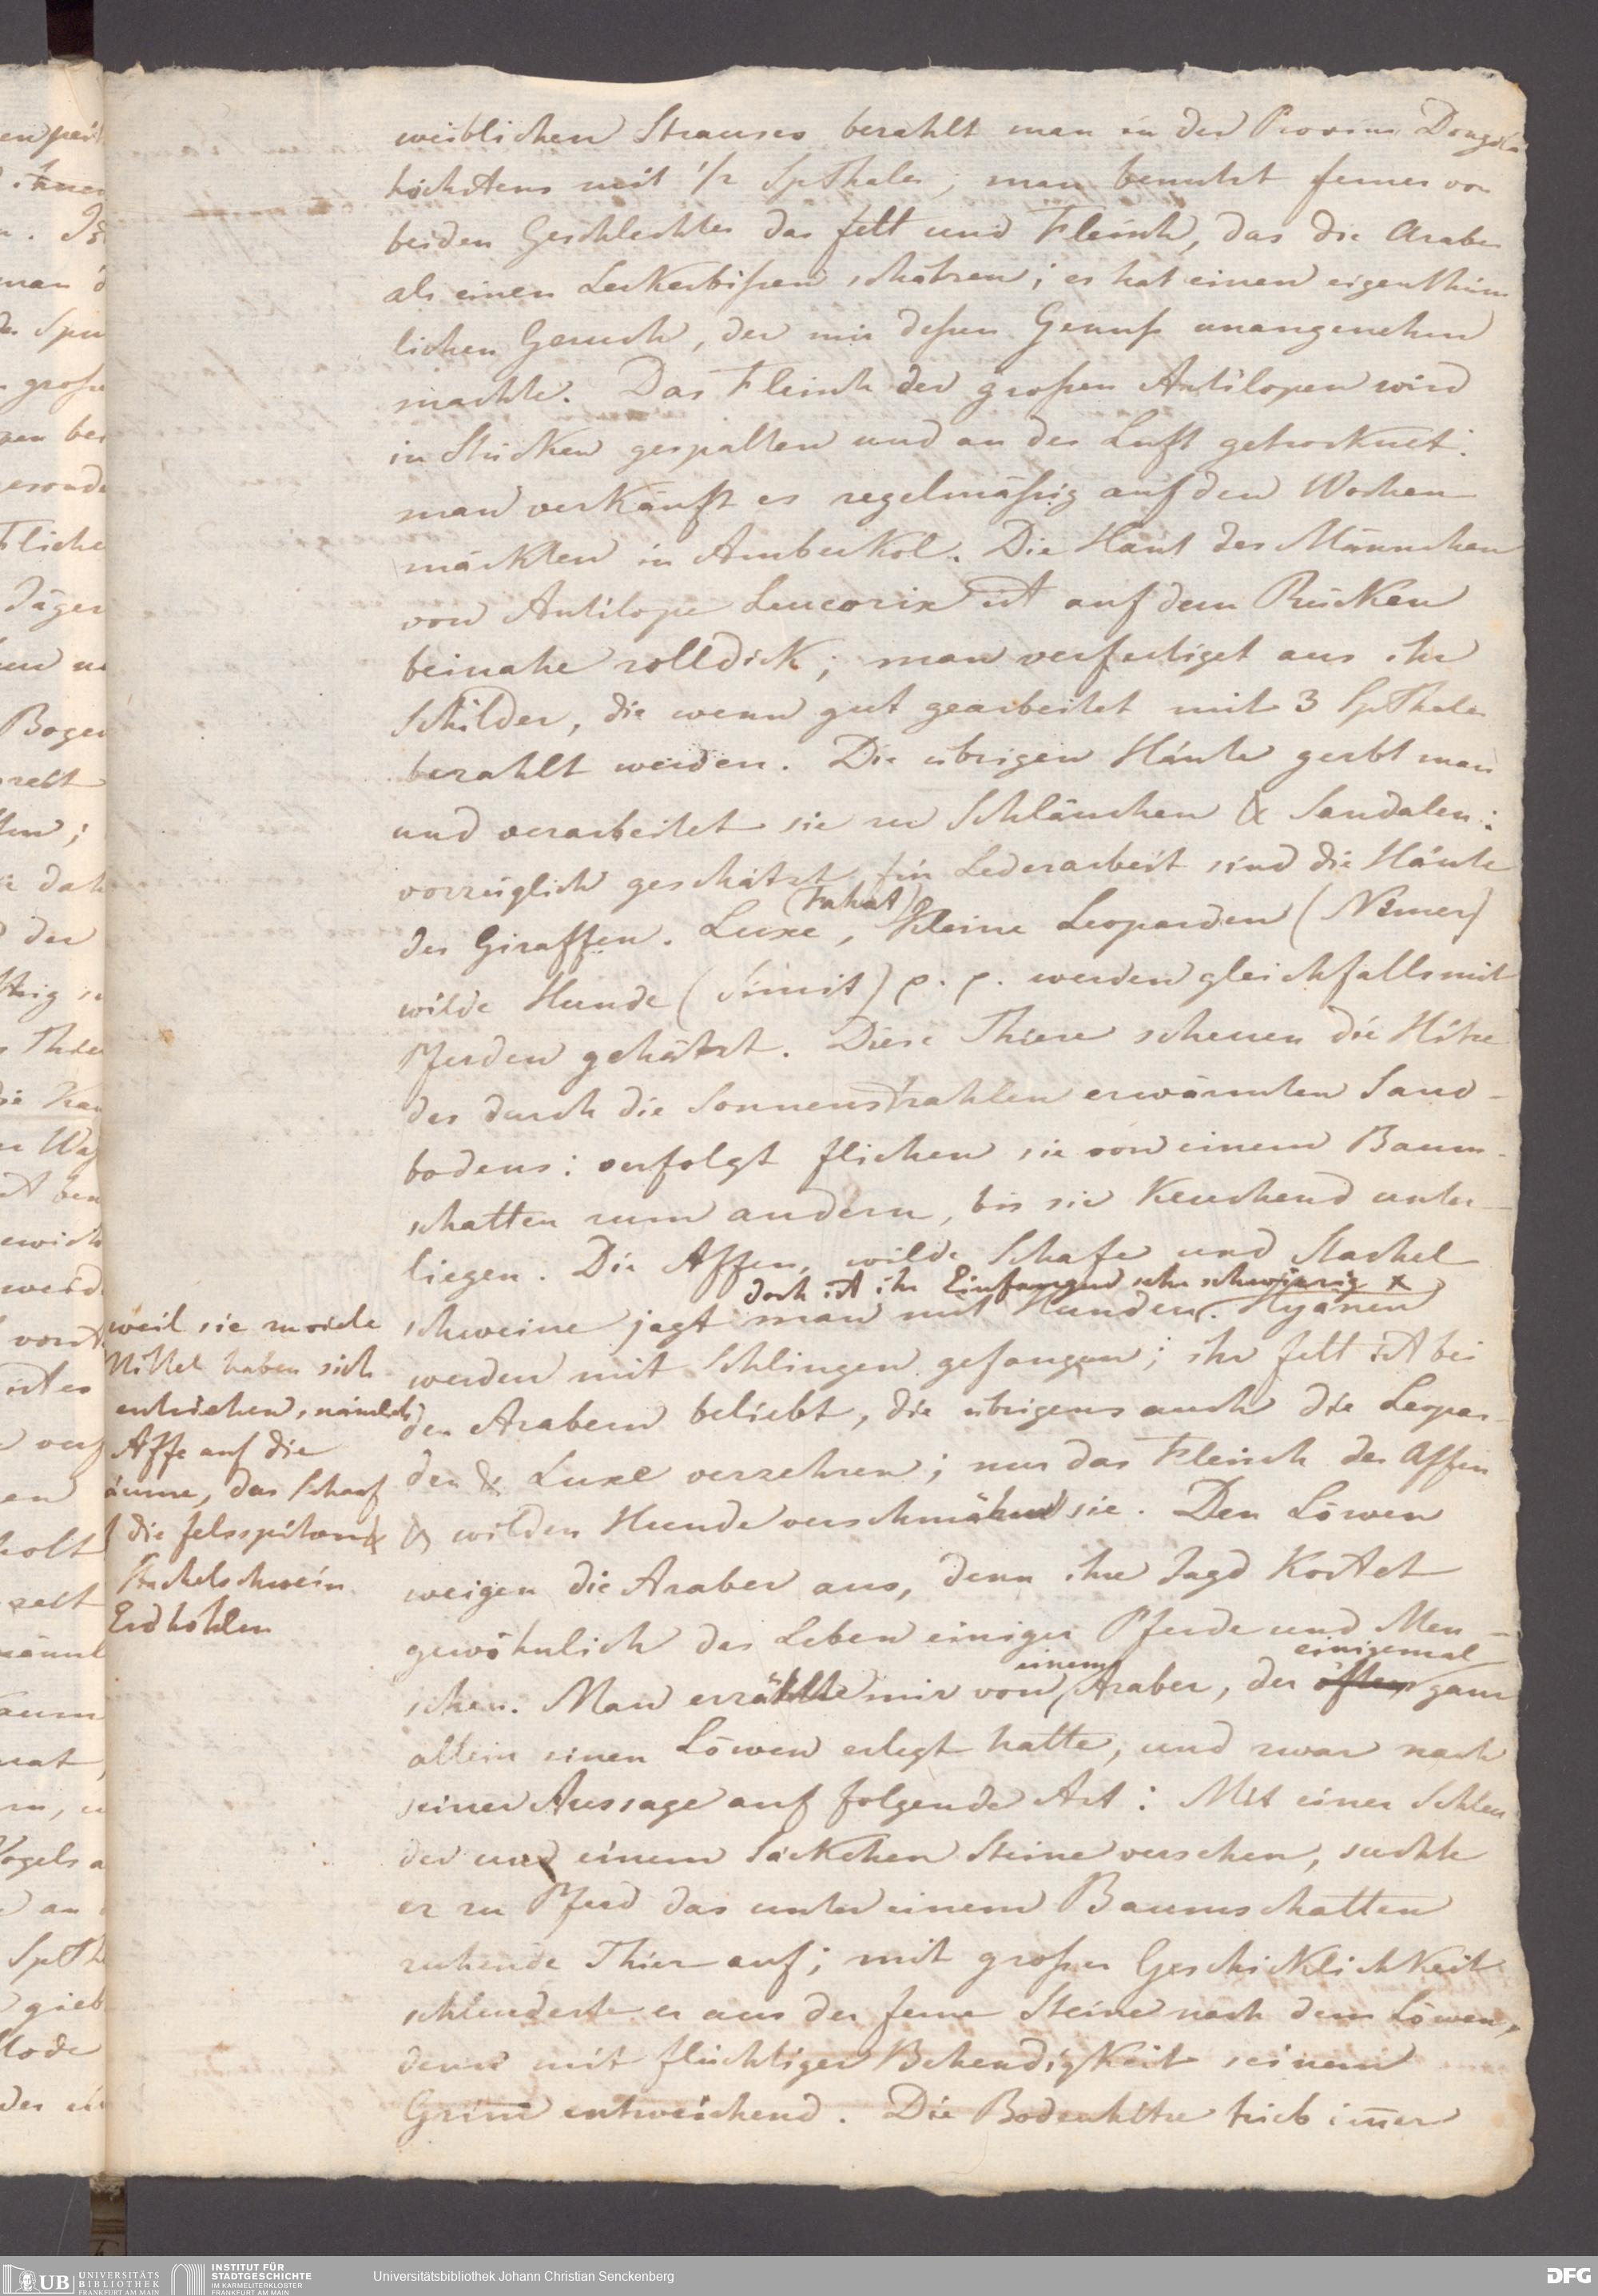 weiblichen Strauses bezahlt man in der Provinz Dongola
höchstens mit 1/2 SpThaler; man benutzt ferner von
beiden Geschlechter das fett und Fleisch, das die Araber
als einen Leckerbißen schätzen; es hat einen eigenthüm
lichen Geruch, der mir deßen Genuß unangenehm
machte. Das Fleisch der großen Antilopen wird
in Stücken gespalten und an der Luft getrocknet:
man verkauft es regelmäßig auf den Wochen
märkten in Ambukol. Die Haut des Männchen
von Antilope Leucorix ist auf dem Rücken
beinahe zolldick; man verfertiget aus ihr
Schilder, die wenn gut gearbeitet mit 3 SpThaler
bezahlt werden. Die übrigen Häute gerbt man
und verarbeitet sie zu Schläuchen & Sandalen:
vorzüglich geschätzt für Lederarbeit sind die Häute
der Giraffen. Luxe (Fahat), Kleine Leoparden (Nimer)
wilde Hunde (Simit) p. p. werden gleichfalls mit
Pferden gehätzt. Diese Thiere scheuen die Hitze
des durch die Sonnenstrahlen erwärmten Sand-
bodens: verfolgt fliehen sie von einem Baum-
schatten zum andern, bis sie Keuchend unter-
liegen. Die Affen, wilde Schafe und Stachel
doch ist ihr Einfangen sehr schwierig x
schweine jagt man mit Hunden. Hyänen
werden mit Schlingen gefangen; ihr fett ist bei
den Arabern beliebt, die übrigens auch die Leopar-
den & Luxe verzehren; nur das Fleisch der Affen
& wilden Hunde verschmähen sie. Den Löwen
weigen die Araber aus, denn ihre Jagd Kostet
gewöhnlich das Leben einiger Pferde und Men-
schen. Man erzählte mir von einem Araber, der öfters einigemal ganz
allein einen Löwen erlegt hatte, und zwar nach
seiner Aussage auf folgende Art: Mit einer Schleu
der und einem Säckchen Steine versehen, suchte
er zu Pferd das unter einem Baumschatten
ruhende Thier auf; mit großer Geschicklichkeit
schleuderte er aus der ferne Steine nach dem Löwen,
dann mit flüchtiger Behendigkeit seinem
Grim̄ entweichend. Die Bodenhitze trieb im̄er
weil sie zu viele
Mittel haben sich
entziehen, nämlich
Affe auf die
äume, das Schaf
die felsspitzen &
Stachelschwein
Erdhöhlen
UB UNIVERSITÄTS
BIBLIOTHEK
FRANKFURT AM MAIN
INSTITUT FÜR
STADTGESCHICHTE
IM KARMELITERKLOSTER
FRANKFURT AM MAIN
Universitätsbibliothek Johann Christian Senckenberg
DFG